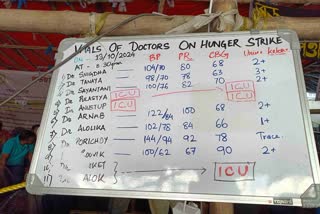 VITALS OF DOCTORS ON HUNGER STRIKE
ON - 13/10/2024
AT - 8.30pm BP PR CBG Urine ketone
1. DR SNIGDHA 104/70 80 68 2+
2. DR TANAYA 98/70 78 63 3+
3. DR SAYANTANI 100/76 82 70 2+
DR PULASTYA ICU ICU
DR ANUSTUP ICU ICU
DR ARNAB 122/84 100 68 2+
DR ALOLIKA 102/78 84 66 1+
PARICHOY 144/94 92 78 Trace
100/62 67 90 2+
10. ICU
11. DR ALOK